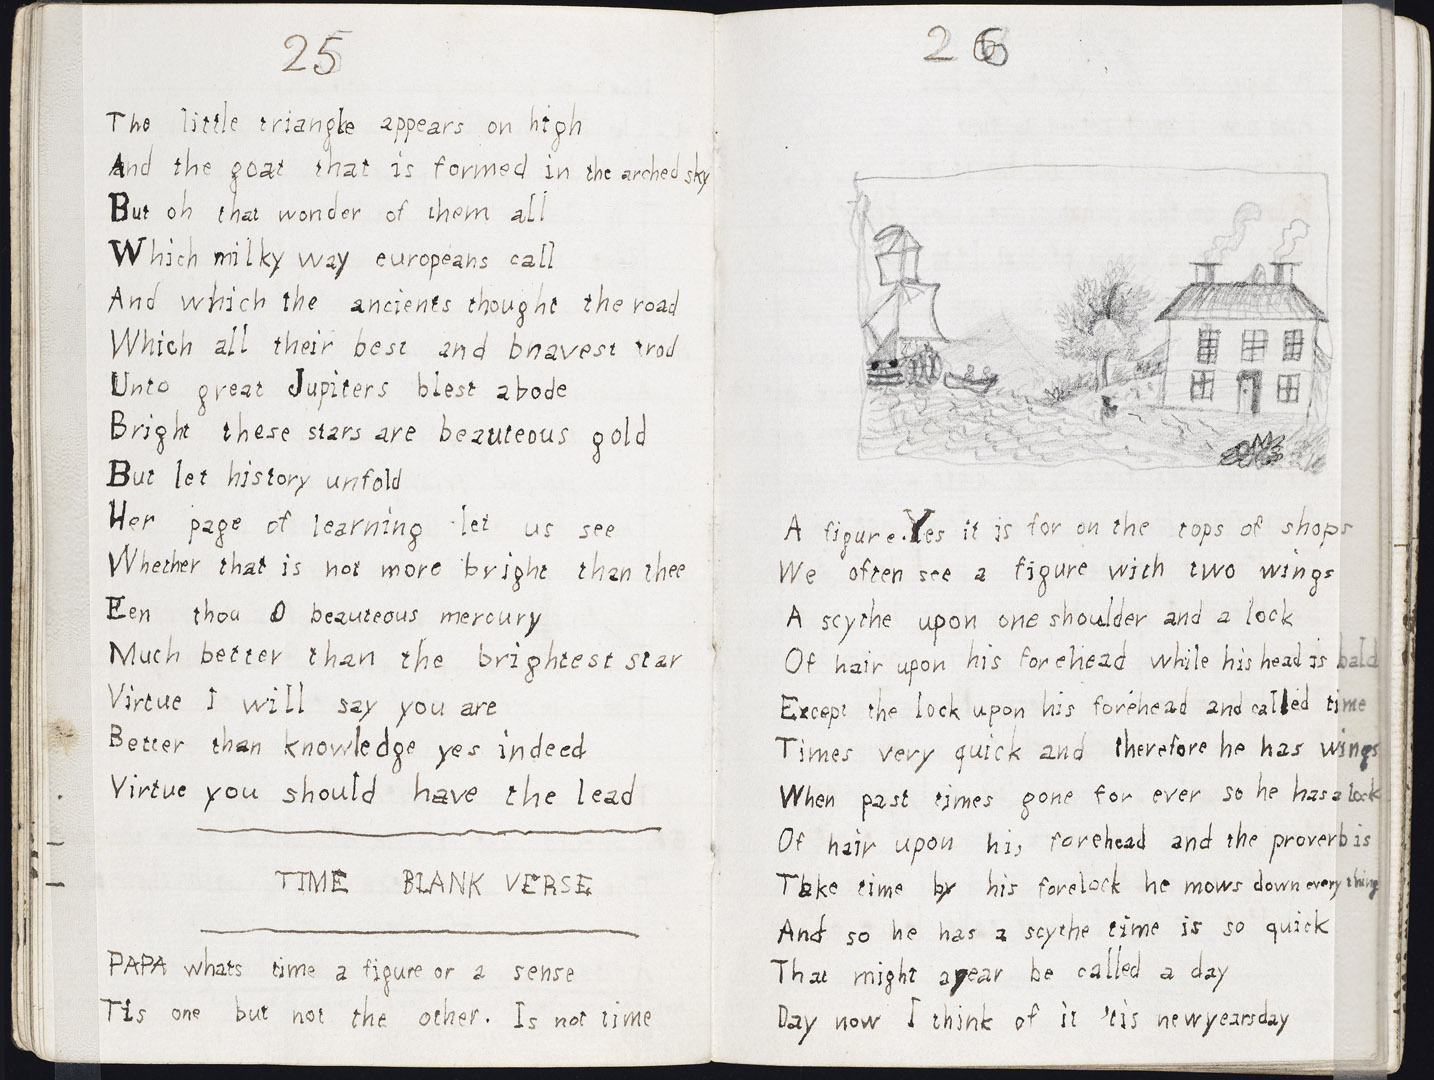 25
The little triangle appears on high
And the goat that is formed in the arched sky
But oh that wonder of them all
Which milky way europeans call
And which the ancients thought the road
Which all their best and bravest trod
Unto great Jupiters blest abode
Bright these stars are beauteous gold
But let history unfold
Her page of learning let us see
Whether that is not more bright than thee
Een thou O beauteous mercury
Much better than the brightest star
Virtue I will say you are
Better than knowledge yes indeed
Virtue you should have the lead
TIME BLANK VERSE
PAPA whats time a figure or a sense
Tis one but not the other. Is not time
26
A figure. Yes it is for on the tops of shops
We often see a figure with two wings
A scythe upon one shoulder and a lock
Of hair upon his forehead while his head is bald
Except the lock upon his forehead and called time
Times very quick and therefore he has wings
When past times gone for ever so he has a lock
Of hair upon his forehead and the proverb is
Take time by his forelock he mows down every thing
And so he has a scythe time is so quick
That might a year be called a day
Day now I think of it 'tis newyearsday